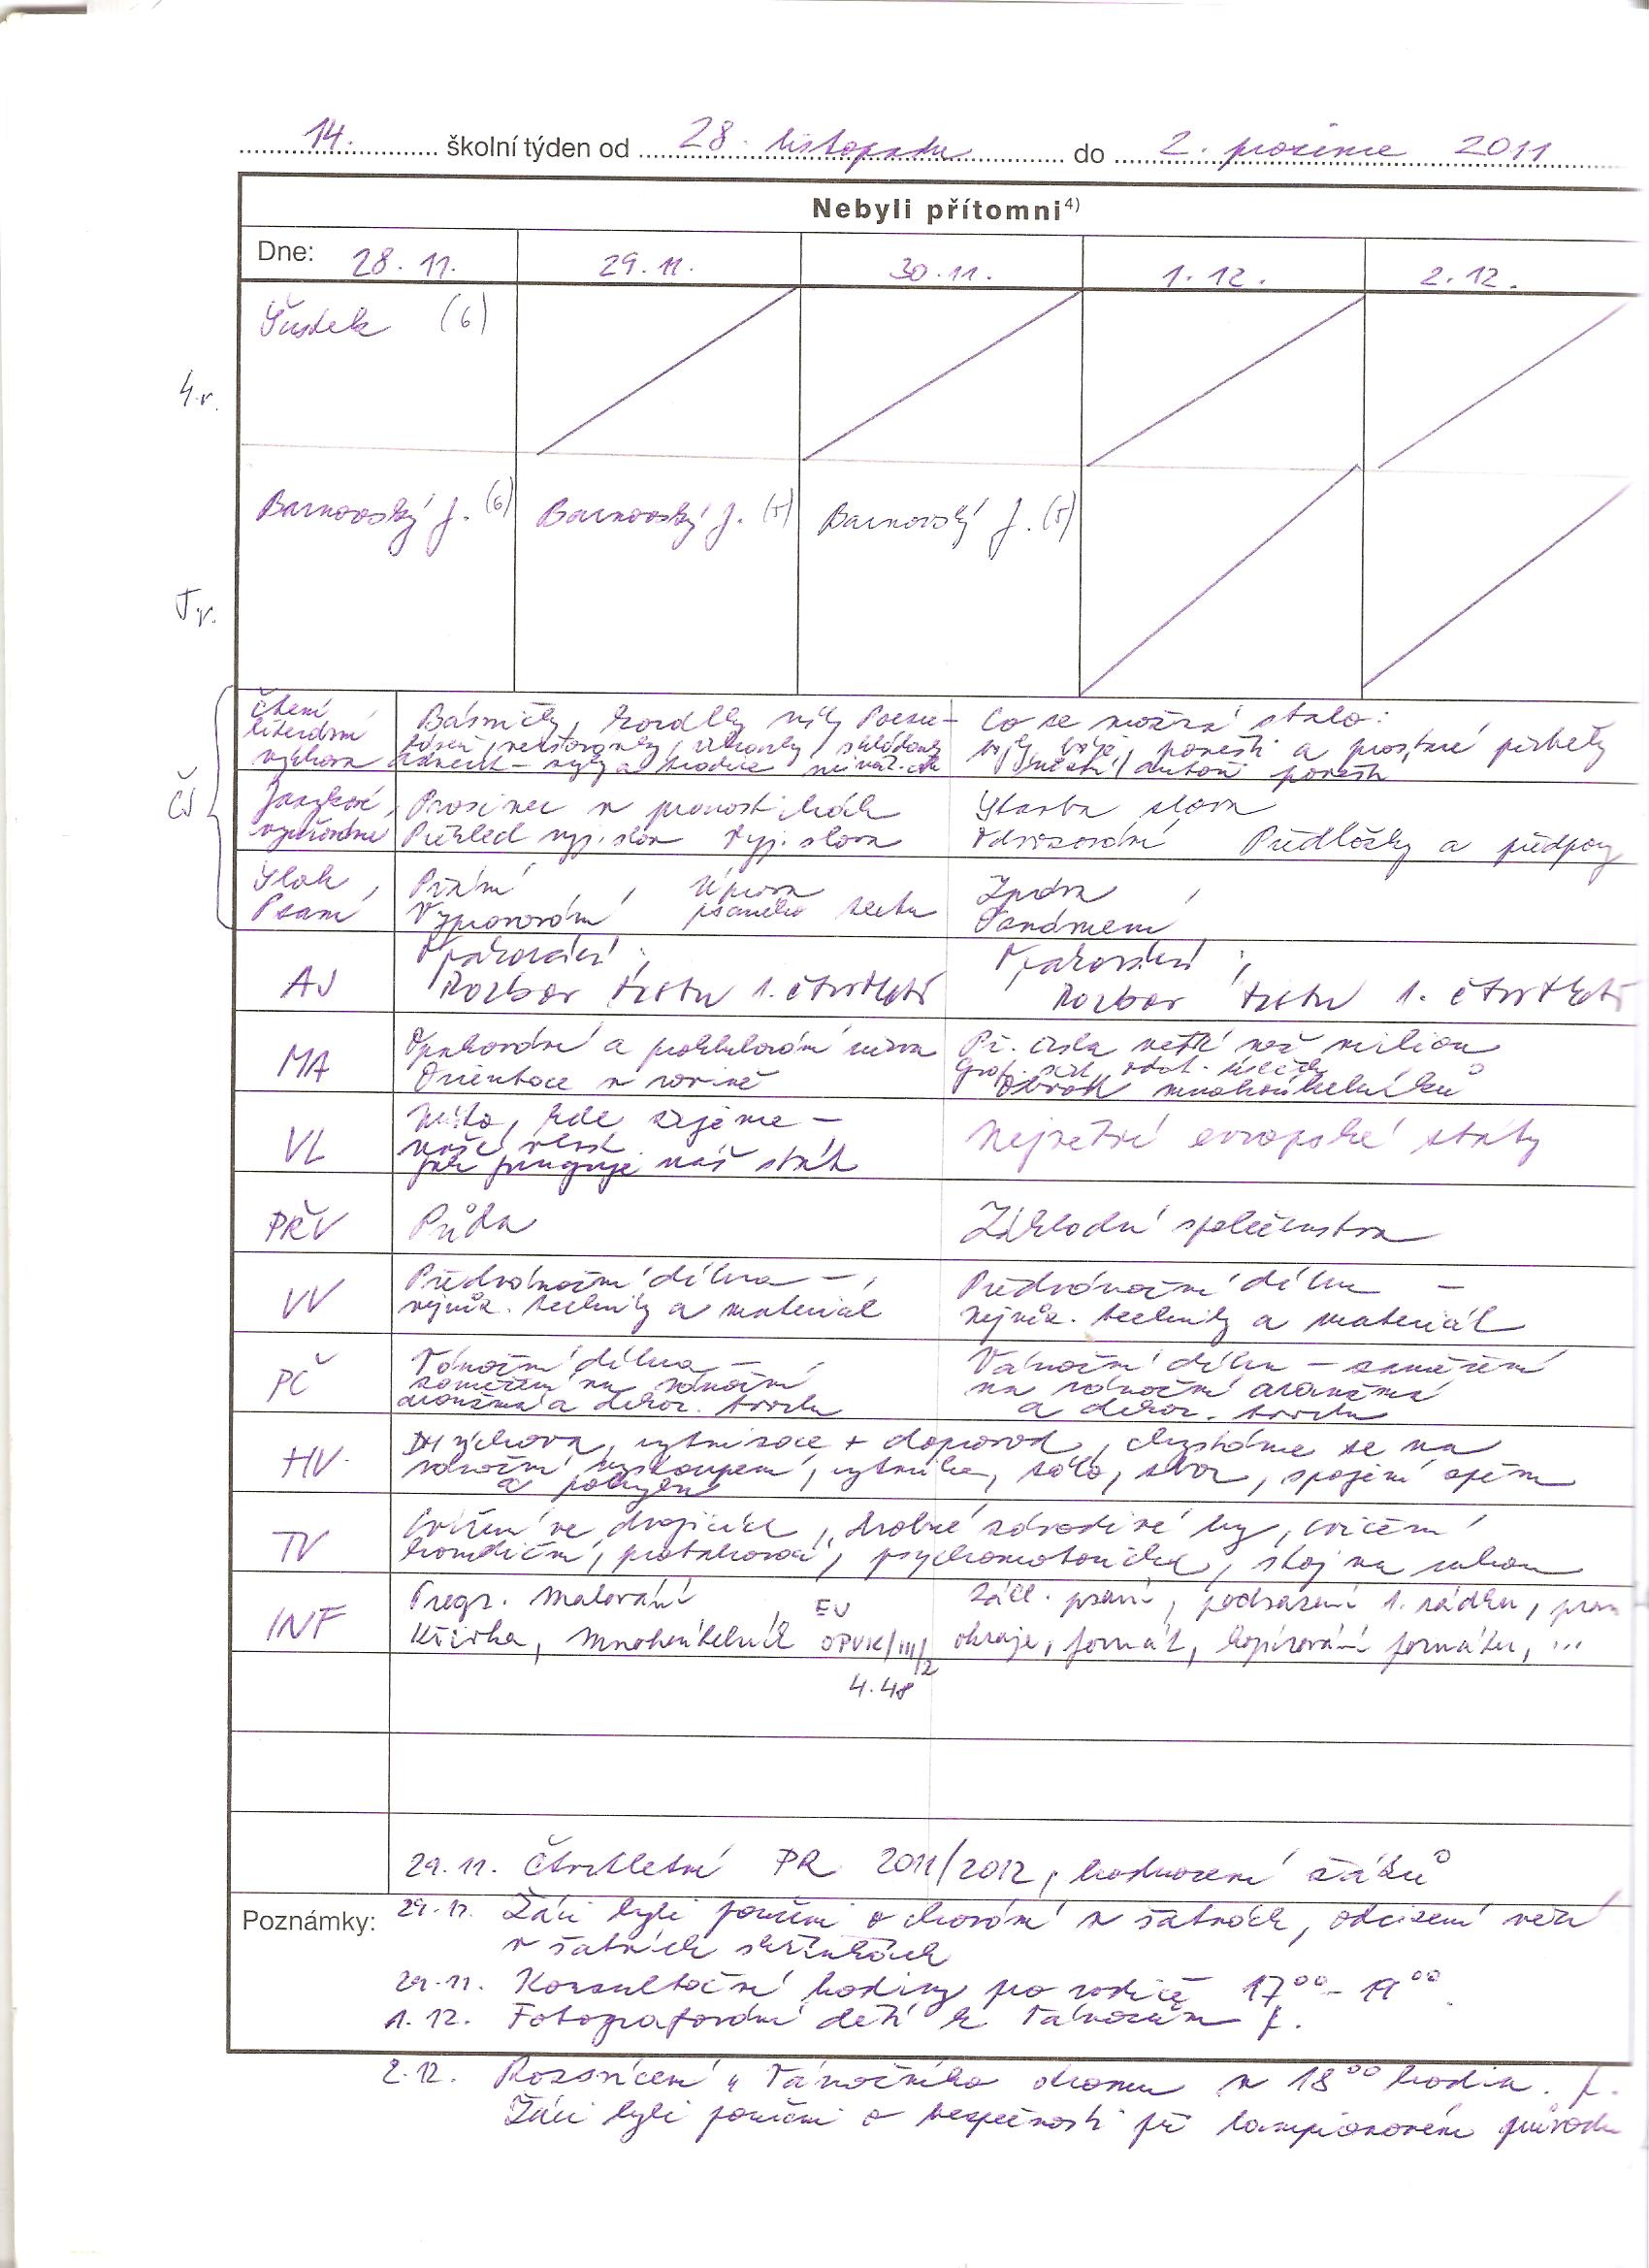 14. školní týden od 28. listopadu do 2. prosince 2011
Nebyli přítomni4)
Dne: 28.11. 29.11. 30.11. 1.12. 2.12.
(6)
4.r.
Barnovský J. (6) Barnovský J. (5) Barnovský J. (5)
5.r.
Čtení Básničky, Co se možná stalo:
literární pověsti a prastaré příběhy
výchova
ČJ
Jazykové Prosinec v pranostikách Stavba slova
vyjadřování Přehled vyj. slov Vyj. slova Odvozování Předložky a předpony
Sloh, Přání Úprava Zpráva
Psaní Vypravování psaného textu Oznámení
AJ Opakování; Opakování;
Rozbor testu 1. čtvrtletí Rozbor testu 1. čtvrtletí
MA Opakování a prohlubování učiva Př. čísla větší než milion
Orientace v rovině Obvod mnohoúhelníků
VL Místo, kde žijeme –
naše vlast Největší evropské státy
Jak funguje náš stát
PŘV Půda Základní společenstva
VV Předvánoční dílna – Předvánoční dílna –
nejrůz. techniky a materiál nejrůz. techniky a materiál
PČ Vánoční dílna – Vánoční dílna – zaměření
zaměření na vánoční na vánoční aranžmá
aranžmá a dekor. tvorbu a dekor. tvorbu
HV výchova, rytmizace + doprovod, chystáme se na
vánoční vystoupení, rytmika, sólo, sbor, spojení zpěvu
a pohybu
TV Cvičení ve dvojicích, drobné závodivé hry, cvičení
kondiční, protahovací, psychomotorická, stoj na rukou
INF Progr. Malování EU Zákl. psaní, podsazení 1. řádku,
Křivka, Mnohoúhelník OPVK/III/2 okraje, formát, kopírování formátu, ...
4.48
29.11. Čtvrtletní PR 2011/2012, hodnocení žáků
Poznámky: 29.11. Žáci byli poučeni o chování v šatnách, odcizení věcí
v šatních skříňkách
29.11. Konzultační hodiny pro rodiče 17 00 – 19 00
1.12. Fotografování dětí k Vánocům
2.12. Rozsvícení Vánočního stromu v 18 00 hodin.
Žáci byli poučeni o bezpečnosti při lampionovém průvodu